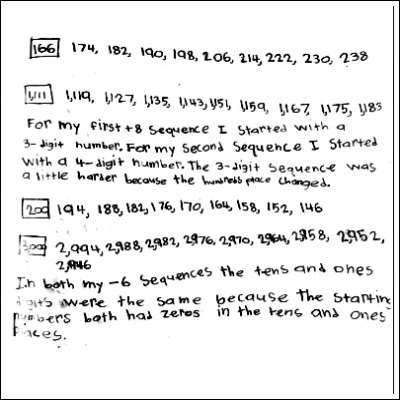 166 174, 182, 190, 198, 206, 214, 222, 230, 238
1,111 1,119, 1,127, 1,135, 1,143, 1,151, 1,159, 1,167, 1,175, 1,183
For my first +8 sequence I started with a
3-digit number. For my second sequence I started
with a 4-digit number. The 3-digit sequence was
a little harder because the hundreds place changed.
200 194, 188, 182, 176, 170, 164, 158, 152, 146
3,000 2,994, 2,988, 2,982, 2,976, 2,970, 2,964, 2,958, 2,952,
2,946
In both my -6 sequences the tens and ones
digits were the same because the starting
numbers both had zeros in the tens and ones
places.